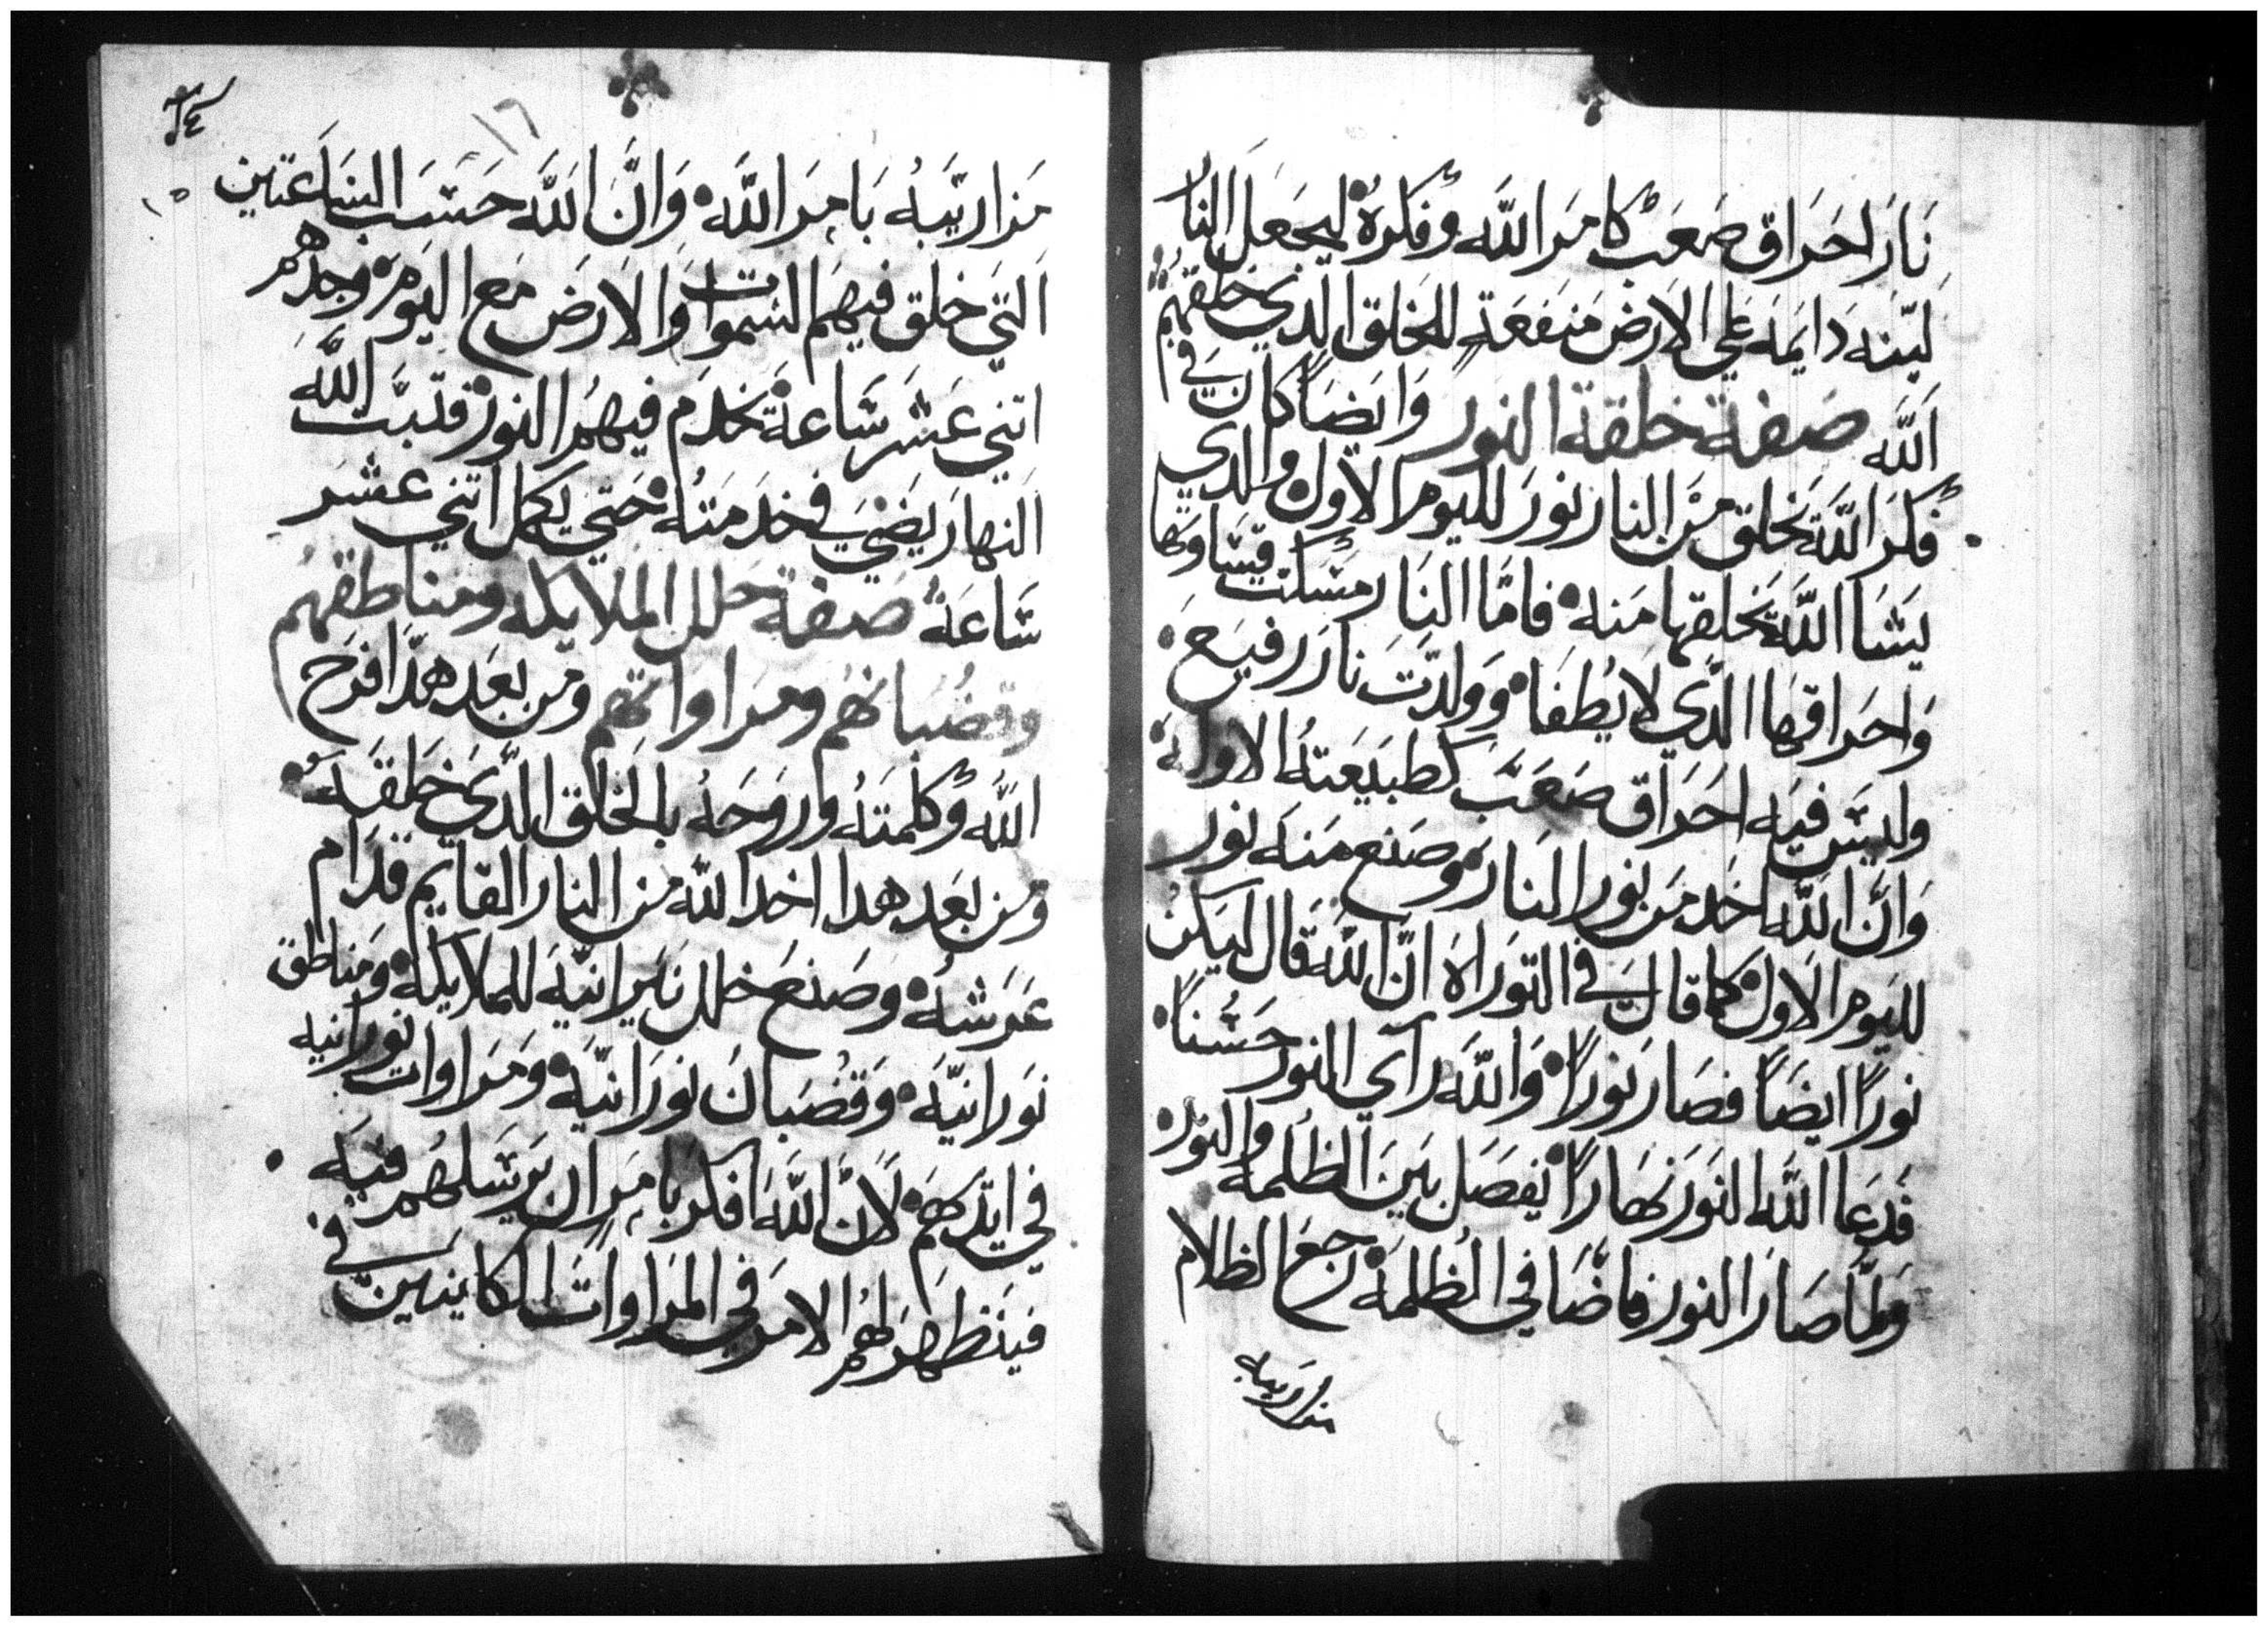 نار احراق صعب كامر الله وفكره ليجعل النار
لينه دايمه علي الارض منفعة للخلق الدي خلقهم
الله صفة خلقة النور وايضاً كان في
فكر الله يخلق من النار نور لليوم الاول والدي
يشا الله يخلقها منه فاما النار مسكت قساوتها
واحراقها الدي لا يطفا وولدت نار رفيع
وليس فيه احراق صعب كطبيعته الاوله
وان الله اخد من نور النار وصنع منه نور
لليوم الاول كما قال في التوراه ان الله قال ليكن
نوراً ايضاً فصار نوراً والله رآي النور حسناً
فدعا الله النور نهاراً يفصل بين الظلمه والنور
ولما صار النور فاضا في الظلمه رجع الظلام
من ارتيبه
٢٤
١٦
١٥
من ارتيبه بامر الله وان الله حسب الساعتين
التي خلق فيهم السموات والارض مع اليوم وجدهم
اتني عشر ساعة تخدم فيهم النور فتبت الله
النهار يضي في خدمته حتي يكمل اتني عشر
ساعة صفة حلل الملايكه ومناطقهم
وقضبانهم ومراواتهم ومن بعد هدا فرح
الله وكلمته وروحه بالخلق الدي خلقه
ومن بعد هدا اخد الله من النار القايم قدام
عرشه وصنع حلل نيرانيه للملايكه ومناطق
نورانيه وقضبان نورانيه ومراوات نورانيه
في ايديهم لان الله افكر بامر ان يرسلهم فيه
فينظهر لهم الامر في المراوات الكاينين في